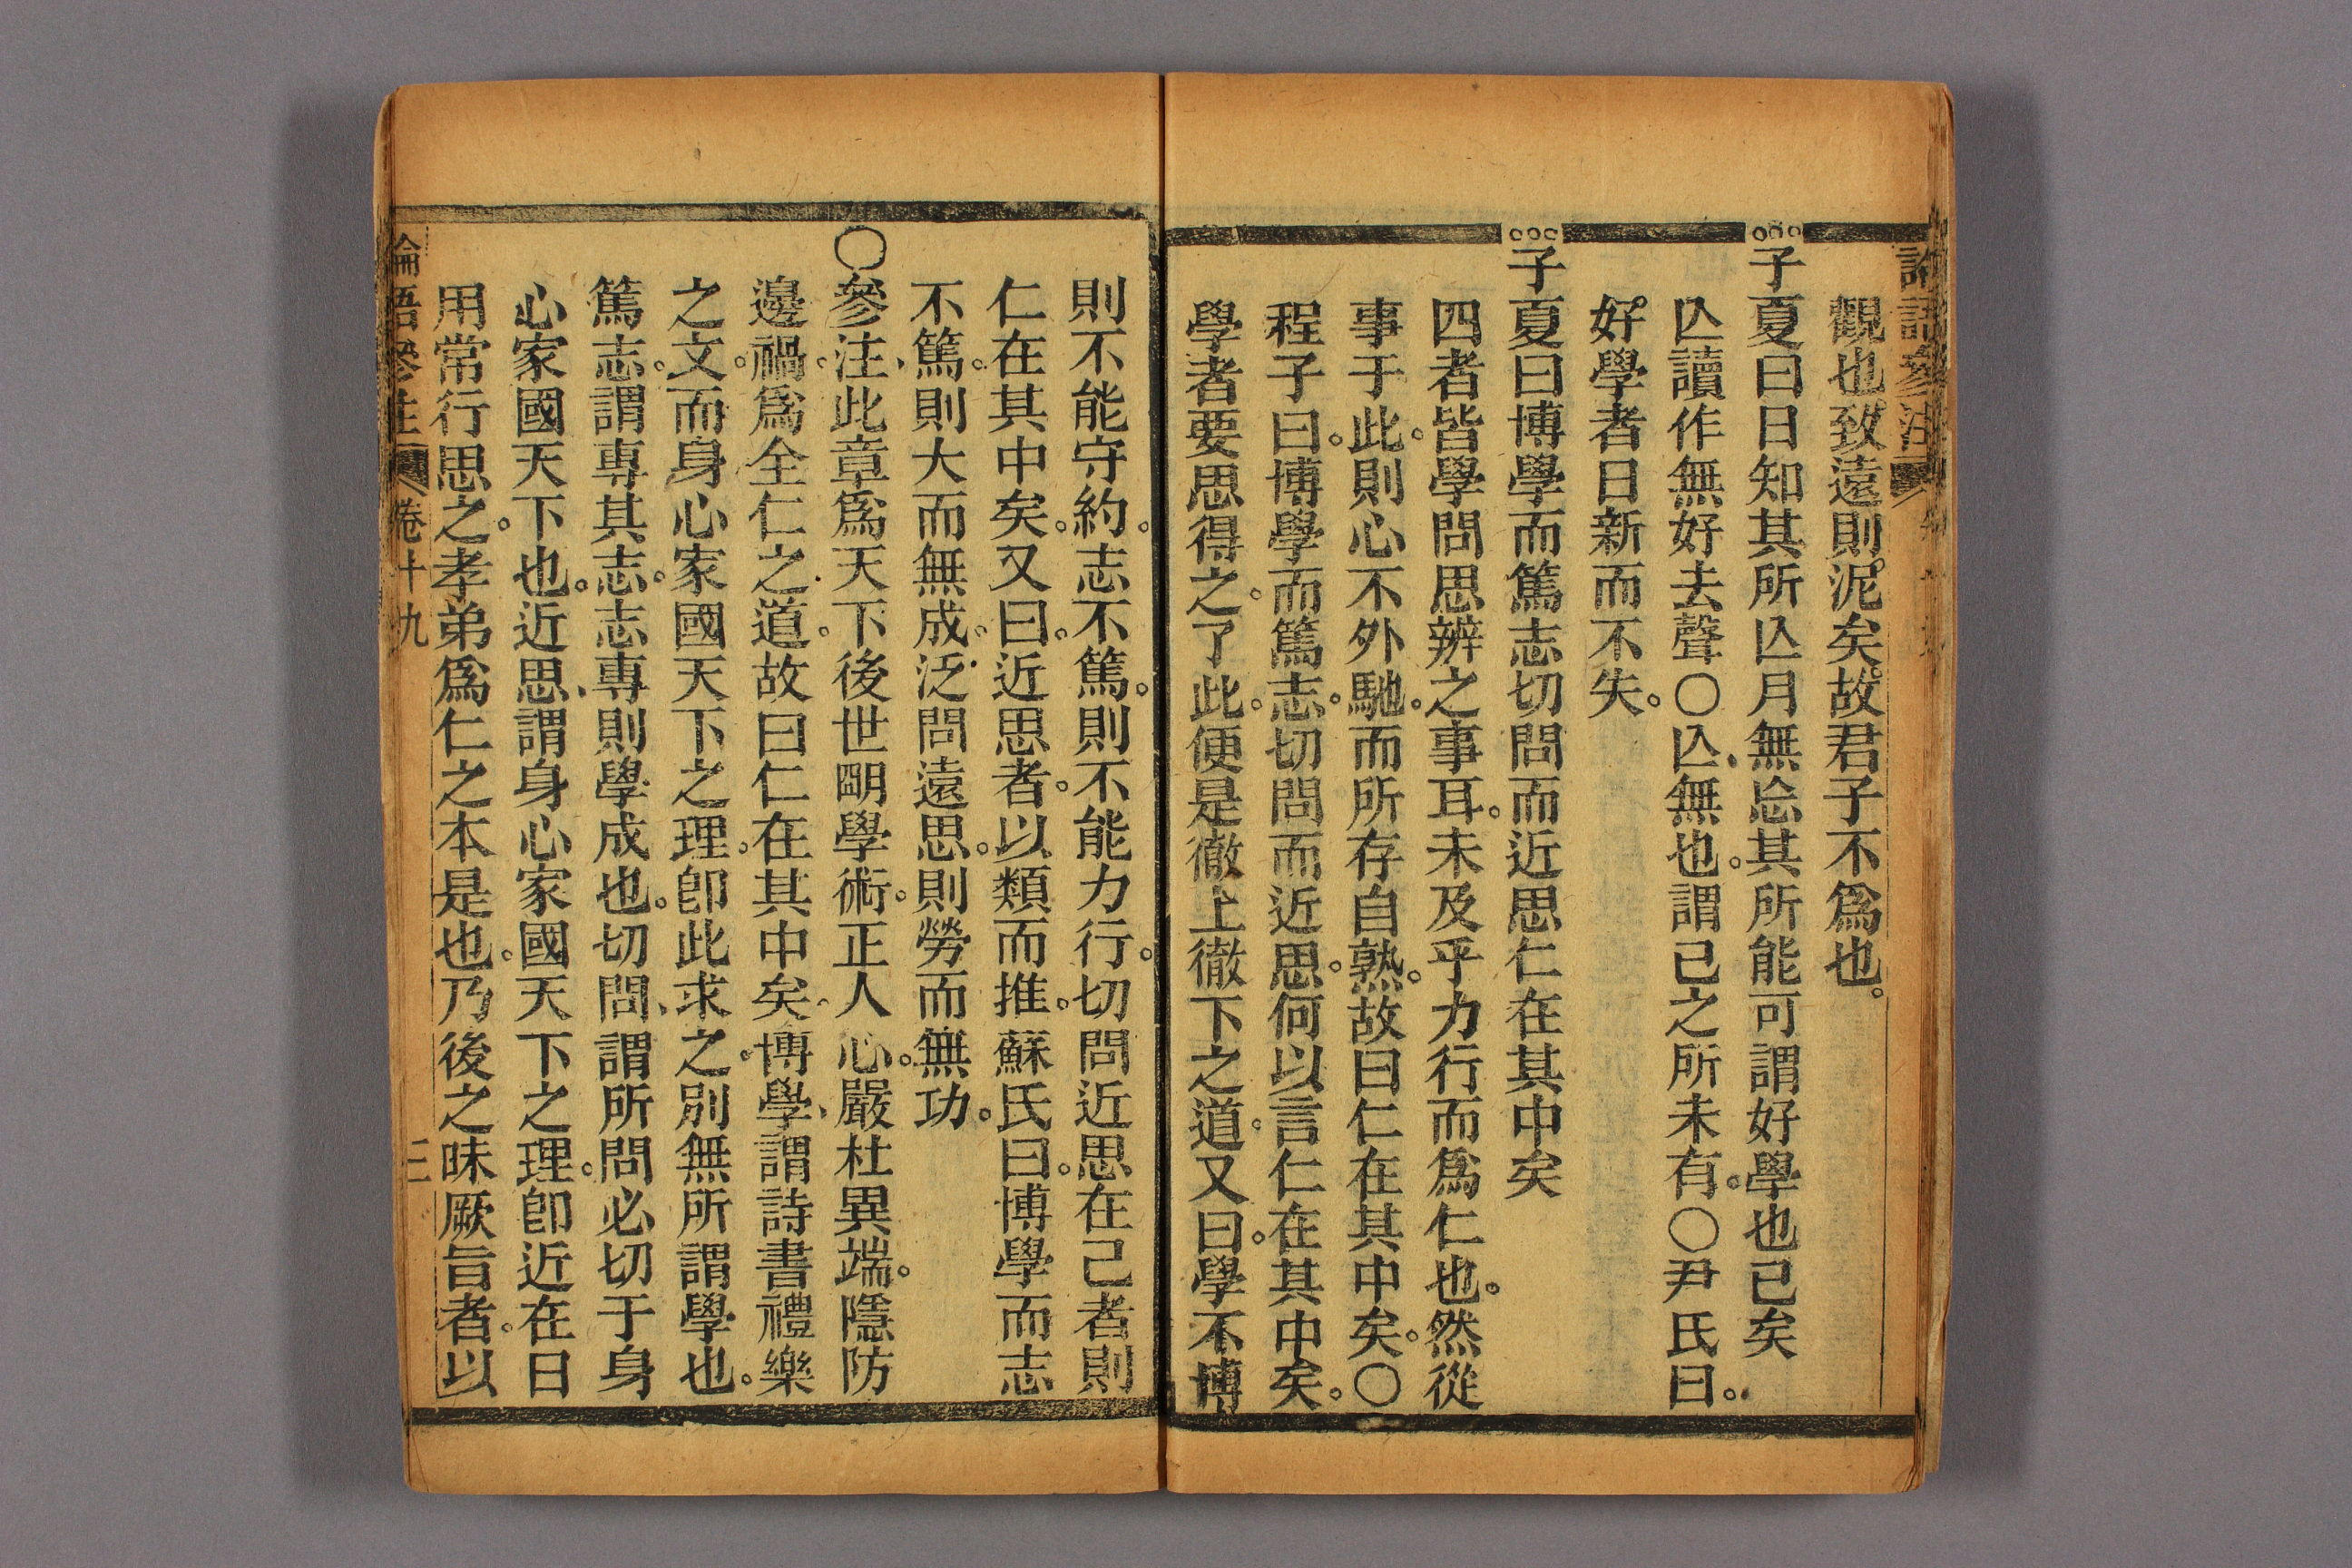 論語參注
觀也致遠則泥矣故君子不爲也。
子夏曰日知其所亾月無忘其所能可謂好學也已矣
亾讀作無好去聲○亾無也。謂己之所未有。○尹氏曰。
好學者日新而不失。
子夏曰博學而篤志切問而近思仁在其中矣
四者皆學問思辨之事耳。未及乎力行而爲仁也。然從
事于此。則心不外馳。而所存自熟。故曰仁在其中矣。○
程子曰。博學而篤志。切問而近思。何以言仁在其中矣。
學者要思得之。了此。便是徹上徹下之道。又曰。學不博
則不能守約。志不篤。則不能力行。切問近思在己者則
仁在其中矣。又曰。近思者。以類而推。蘇氏曰。博學而志
不篤。則大而無成。泛問遠思。則勞而無功。
○參注、此章爲天下後世朙學術。正人心。嚴杜異端。隱防
邊禍。爲全仁之道。故曰仁在其中矣。博學、謂詩書禮樂
之文。而身心家國天下之理。卽此求之。別無所謂學也。
篤志。謂專其志。志專則學成也。切問、謂所問必切于身
心家國天下也。近思、謂身心家國天下之理。卽近在日
用常行思之。孝弟爲仁之本是也。乃後之昧厥旨者。以
論語參注 卷十九 三